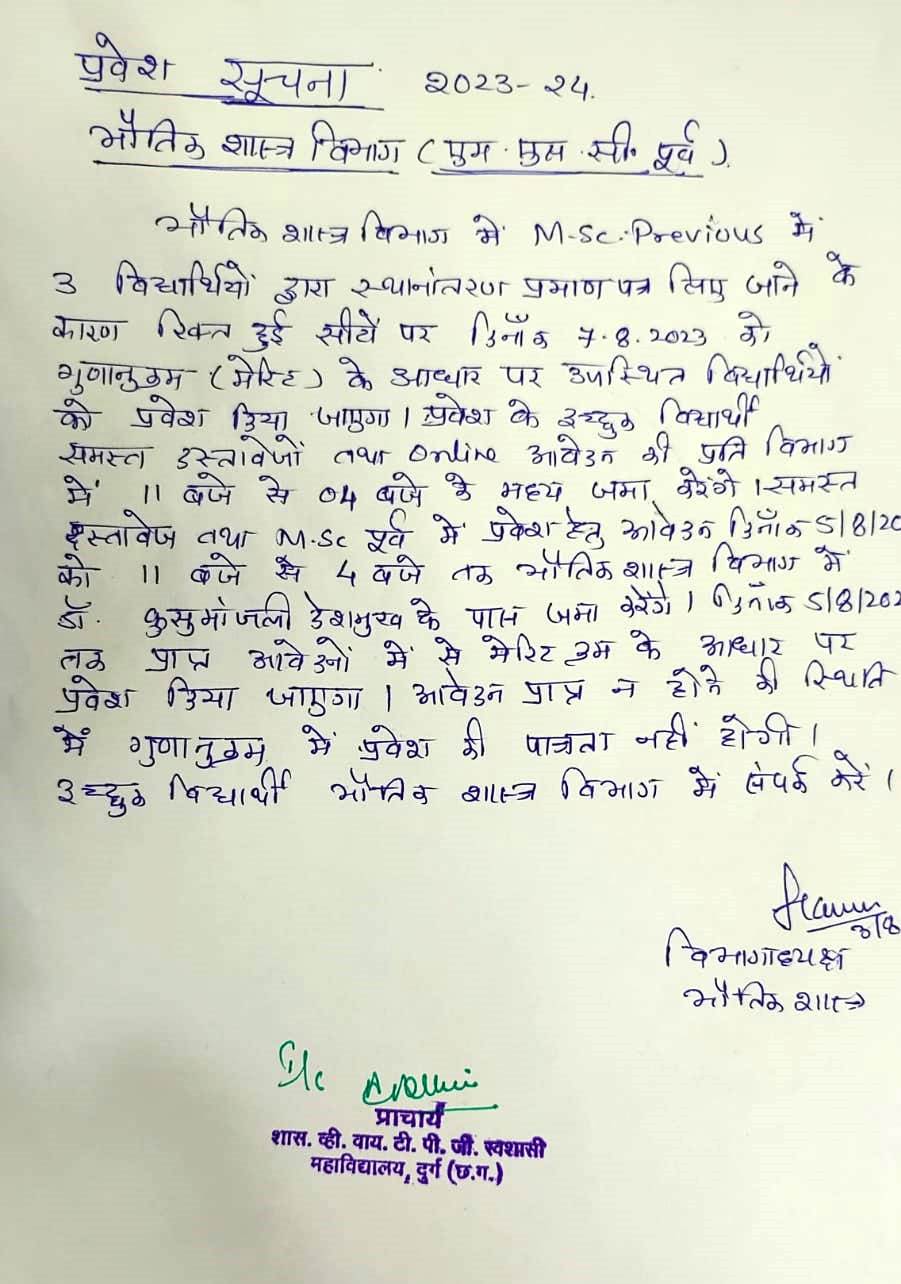 प्रवेश सूचना 2023-24.
भौतिक शास्त्र विभाग (एम. एस. सी. पूर्व).
भौतिक शास्त्र विभाग में M.Sc. Previous में
3 विद्यार्थियों द्वारा स्थानांतरण प्रमाण पत्र लिए जाने के
कारण रिक्त हुई सीटों पर दिनाँक 7.8.2023 को
गुणानुक्रम (मेरिट) के आधार पर उपस्थित विद्यार्थियों
को प्रवेश दिया जाएगा। प्रवेश के इच्छुक विद्यार्थी
समस्त दस्तावेजों तथा online आवेदन की प्रति विभाग
में 11 बजे से 04 बजे के मध्य जमा करेंगे। समस्त
दस्तावेज तथा M.Sc पूर्व में प्रवेश हेतु आवेदन दिनाँक 5/8/20
को 11 बजे से 4 बजे तक भौतिक शास्त्र विभाग में
डॉ. कुसुमांजली देशमुख के पास जमा करेंगे। दिनाँक 5/8/202
तक प्राप्त आवेदनों में से मेरिट क्रम के आधार पर
प्रवेश दिया जाएगा। आवेदन प्राप्त न होने की स्थिति
में गुणानुक्रम में प्रवेश की पात्रता नहीं होगी।
इच्छुक विद्यार्थी भौतिक शास्त्र विभाग में संपर्क करें।
3/8
विभागाध्यक्ष
भौतिक शास्त्र
I/c
प्राचार्य
शास. व्ही. वाय. टी. पी. जी. स्वशासी
महाविद्यालय, दुर्ग (छ.ग.)